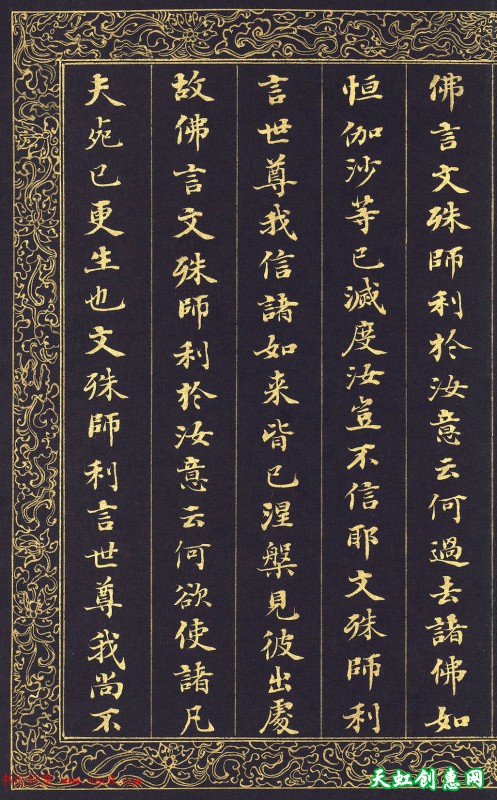 佛言文殊師利於汝意云何過去諸佛如
恒伽沙等已滅度汝豈不信耶文殊師利
言世尊我信諸如来皆已涅槃見彼出處
故佛言文殊師利於汝意云何欲使諸凡
夫死已更生也文殊師利言世尊我尚不
天虹创意网